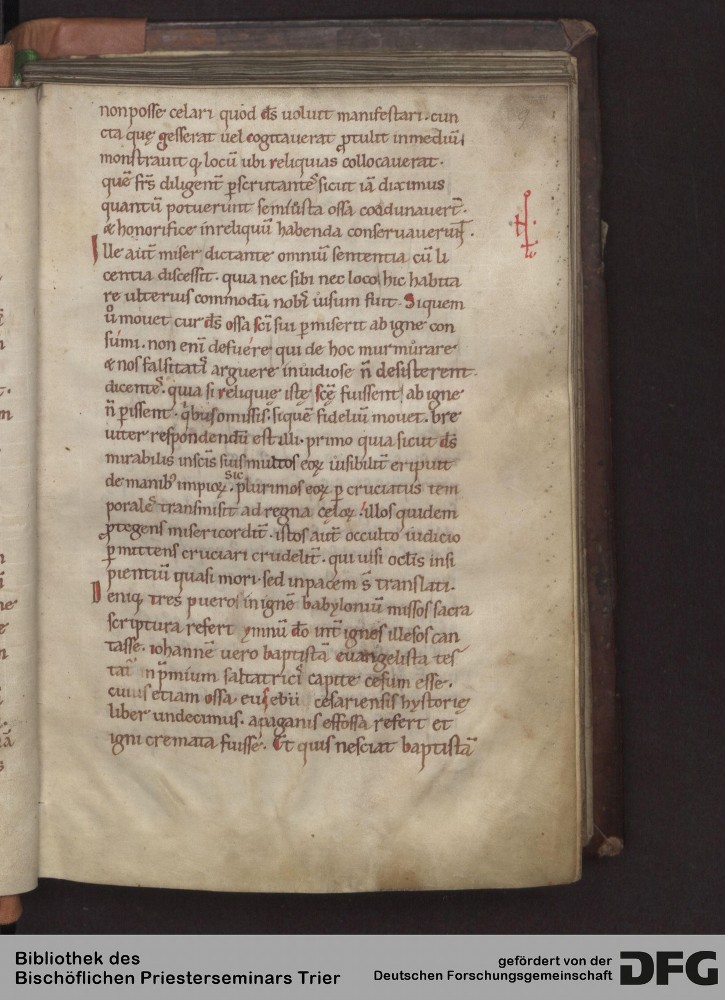 non posse celari quod dẜ uoluit manifestari. cun
cta quę gesserat uel cogitauerat ꝓtulit inmediū
monstrauit q; locū ubi reliquias collocauerat.
quē fr̄s diligent̄ ꝑscrutantes sicut iā diximus
quantū potuerunt semiusta ossa coadunauer̄t.
& honorifice inreliquū habenda conseruauerunt.
Ille aūt miser dictante omniū sententia cū li
centia discessit. quia nec sibi nec loco hic habita
re ulterius commodū nob̄ uisum fuit. Siquem
ů mouet cur dẜ ossa sc̄i sui ꝑmiserit ab igne con
sumi. non enī defuere qui de hoc murmurare
& nos falsitatis arguere inuidiose n̄ desisterent.
dicentes. quia si reliquię istę scę̄ fuissent ab igne
n̄ ꝑissent. q̇bus omissis. siquē fideliū mouet. bre
uiter respondendū est illi. primo quia sicut dẜ
mirabilis insc̄is suis multos eoꝝ uisibilit̄ eripuit
de manib; impioꝝ. sic plurimos eoꝝ ꝑ cruciatus tem
porales transmisit ad regna cęloꝝ. illos quidem
ꝓtegens misericordit̄. istos aūt occulto iudicio
ꝑmittens cruciari crudelit̄. qui uisi oclis insi
pientiū quasi mori. sed inpacem s̄ translati.
Deniq; tres pueros in ignē babyloniū missos sacra
scriptura refert ymnū dō int̄ ignes illesos can
tasse. iohannē uero baptistā euangelista tes
tat̄ in p̄mium saltatricis capite cesum esse.
cuius etiam ossa eusebii cesariensis hystorię
liber undecimus. a paganis effossa refert et
igni cremata fuisse. Et quis nesciat baptistā
Bibliothek des
Bischöflichen Priesterseminars Trier
gefördert von der
Deutschen Forschungsgemeinschaft
DFG